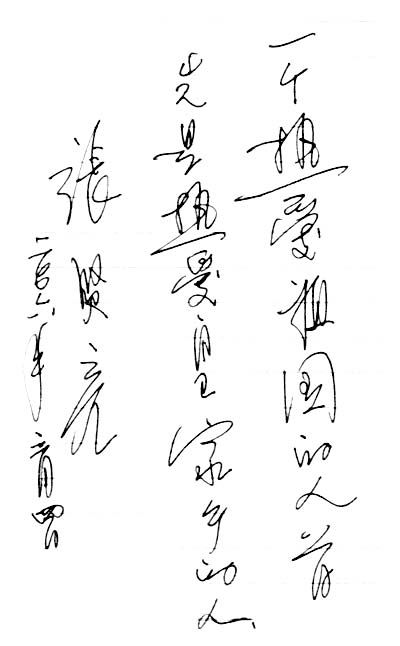 一个热爱祖国的人首
先是热爱自己家乡的人
張贤亮
二〇〇六年月四日